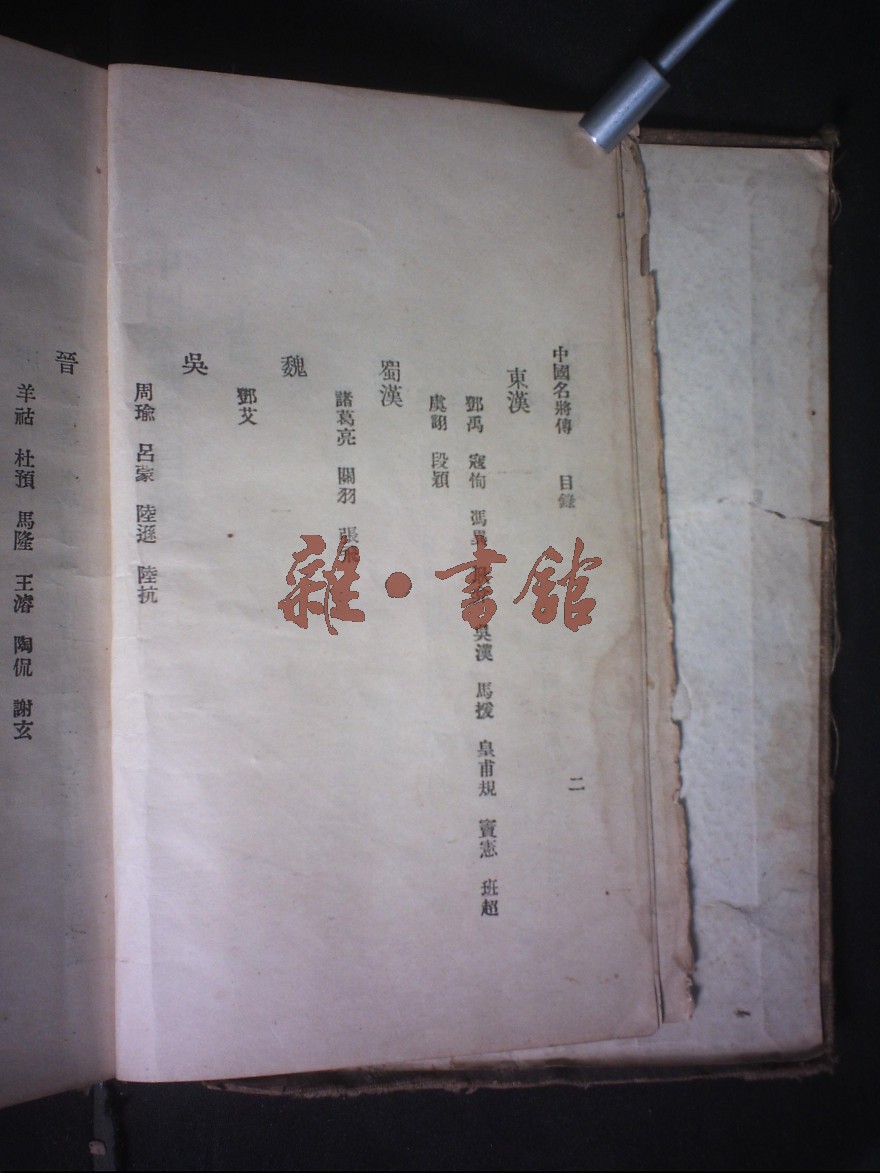 中國名將傳 目錄 二
東漢
鄧禹 寇恂 馮異 吳漢 馬援 皇甫規 竇憲 班超
虞詡 段熲
蜀漢
諸葛亮 關羽 張飛
魏
鄧艾
吳
周瑜 呂蒙 陸遜 陸抗
晉
羊祜 杜預 馬隆 王濬 陶侃 謝玄
雜·書館